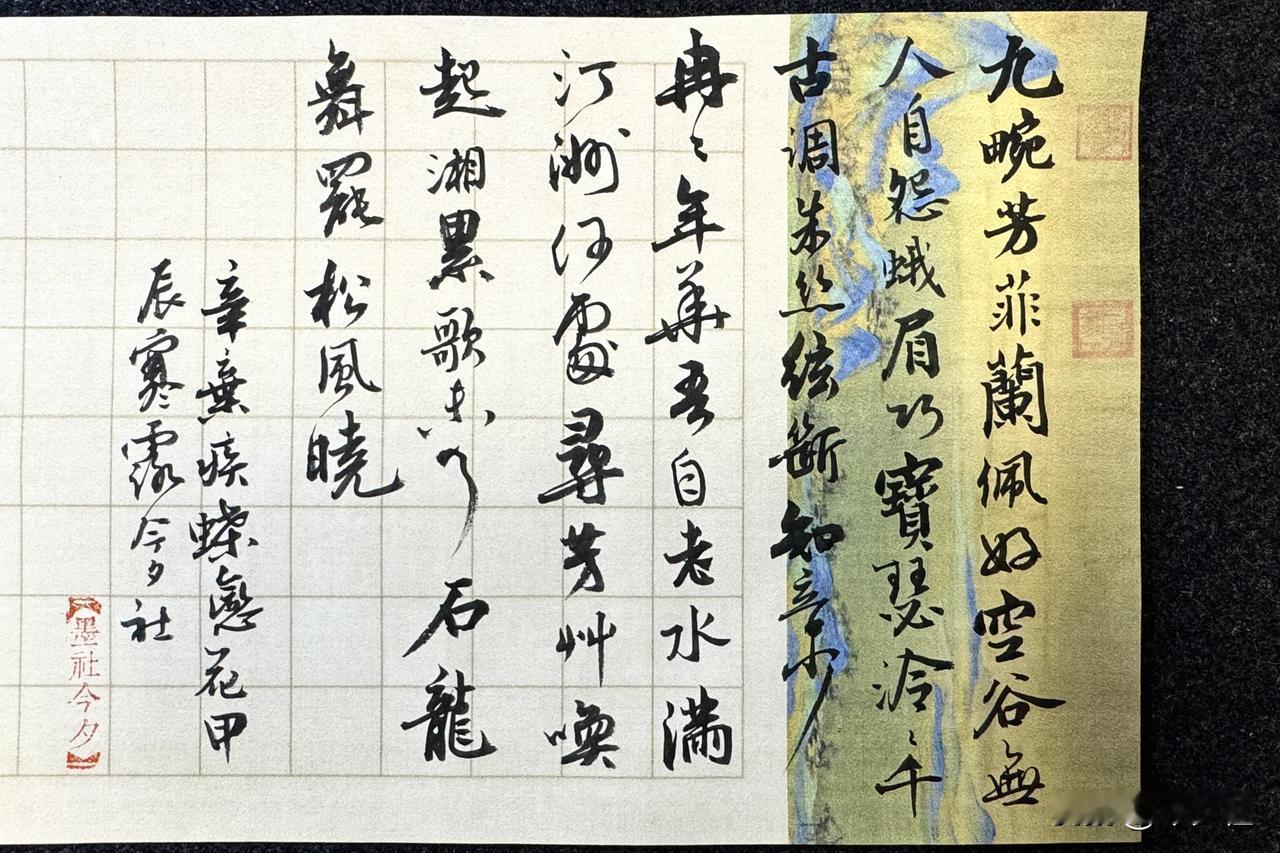 九畹芳菲蘭佩好空谷無
人自怨蛾眉巧寶瑟泠〻千
古調朱絲絃斷知音少
冉〻年華吾自老水滿
汀洲何處尋芳艸喚
起湘累歌未了石龍
舞罷松風曉
辛棄疾蝶戀花甲
辰寒露今夕社
【墨社今夕】